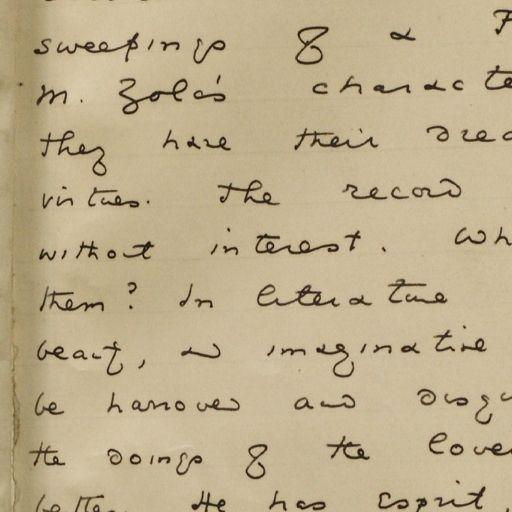 sweepings of a P
M. Zola's characte
they have their drea
virtues. The record
without interest. Wh
them? In literature
beauty, and imaginative
be harrowed and disgu
the doings of the lowe
better. He has esprit,